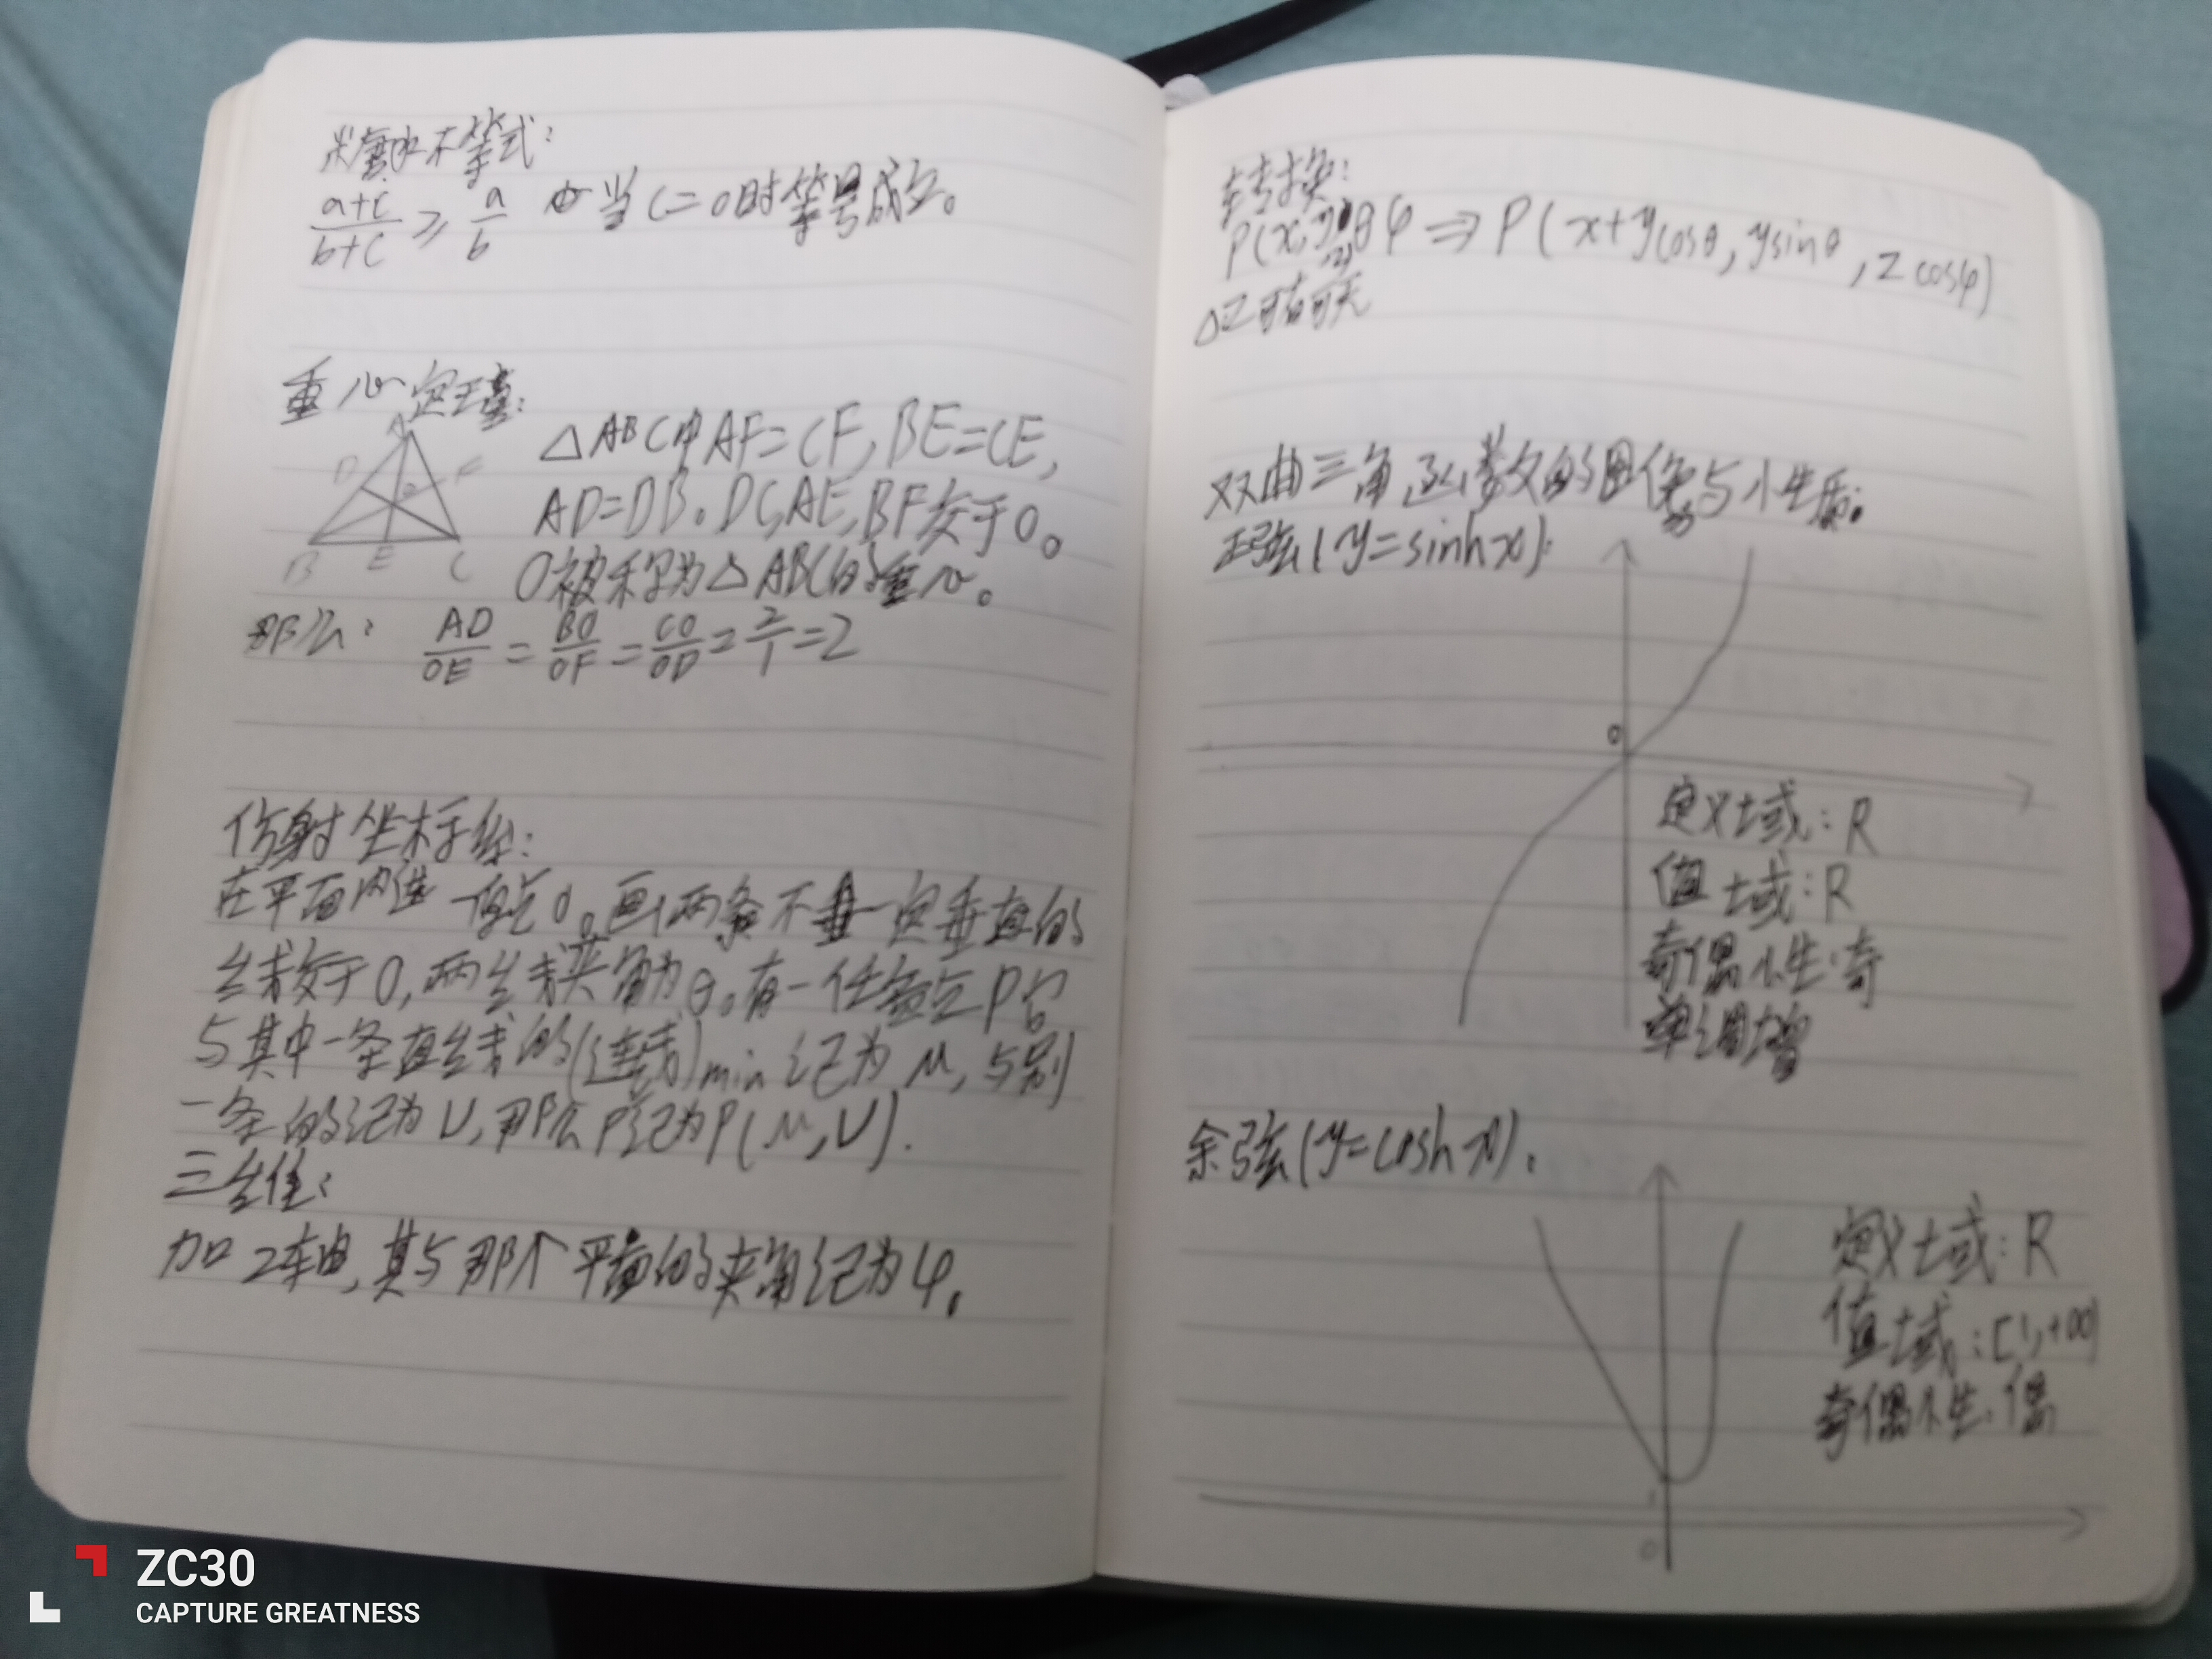 糖水不等式:
a+c/b+c ≥ a/b 当C=0时等号成立。
重心定理:
A
D F
O
B E C
△ABC中AF=CF,BE=CE,
AD=DB。DC,AE,BF交于O。
O被称为△ABC的重心。
那么: AD/OE = BO/OF = CO/OD = 2/1 = 2
仿射坐标系:
在平面内选一原点O。画两条不一定垂直的
线交于O,两线夹角为θ。有一任意点P它
与其中一条直线的(连线)min记为μ,与别
一条的记为ν,那么P记为P(μ,ν).
三维:
加z轴,其与那个平面的夹角记为φ。
转换:
P(x,y,z)θφ ⇒ P(x+ycosθ,ysinθ,zcosφ)
△Z可有可无
双曲三角函数的图像与性质:
正弦(y=sinhx):
0
定义域:R
值域:R
奇偶性:奇
单调增
余弦(y=coshx):
定义域:R
值域:[1,+∞)
奇偶性:偶
1
0
ZC30
CAPTURE GREATNESS